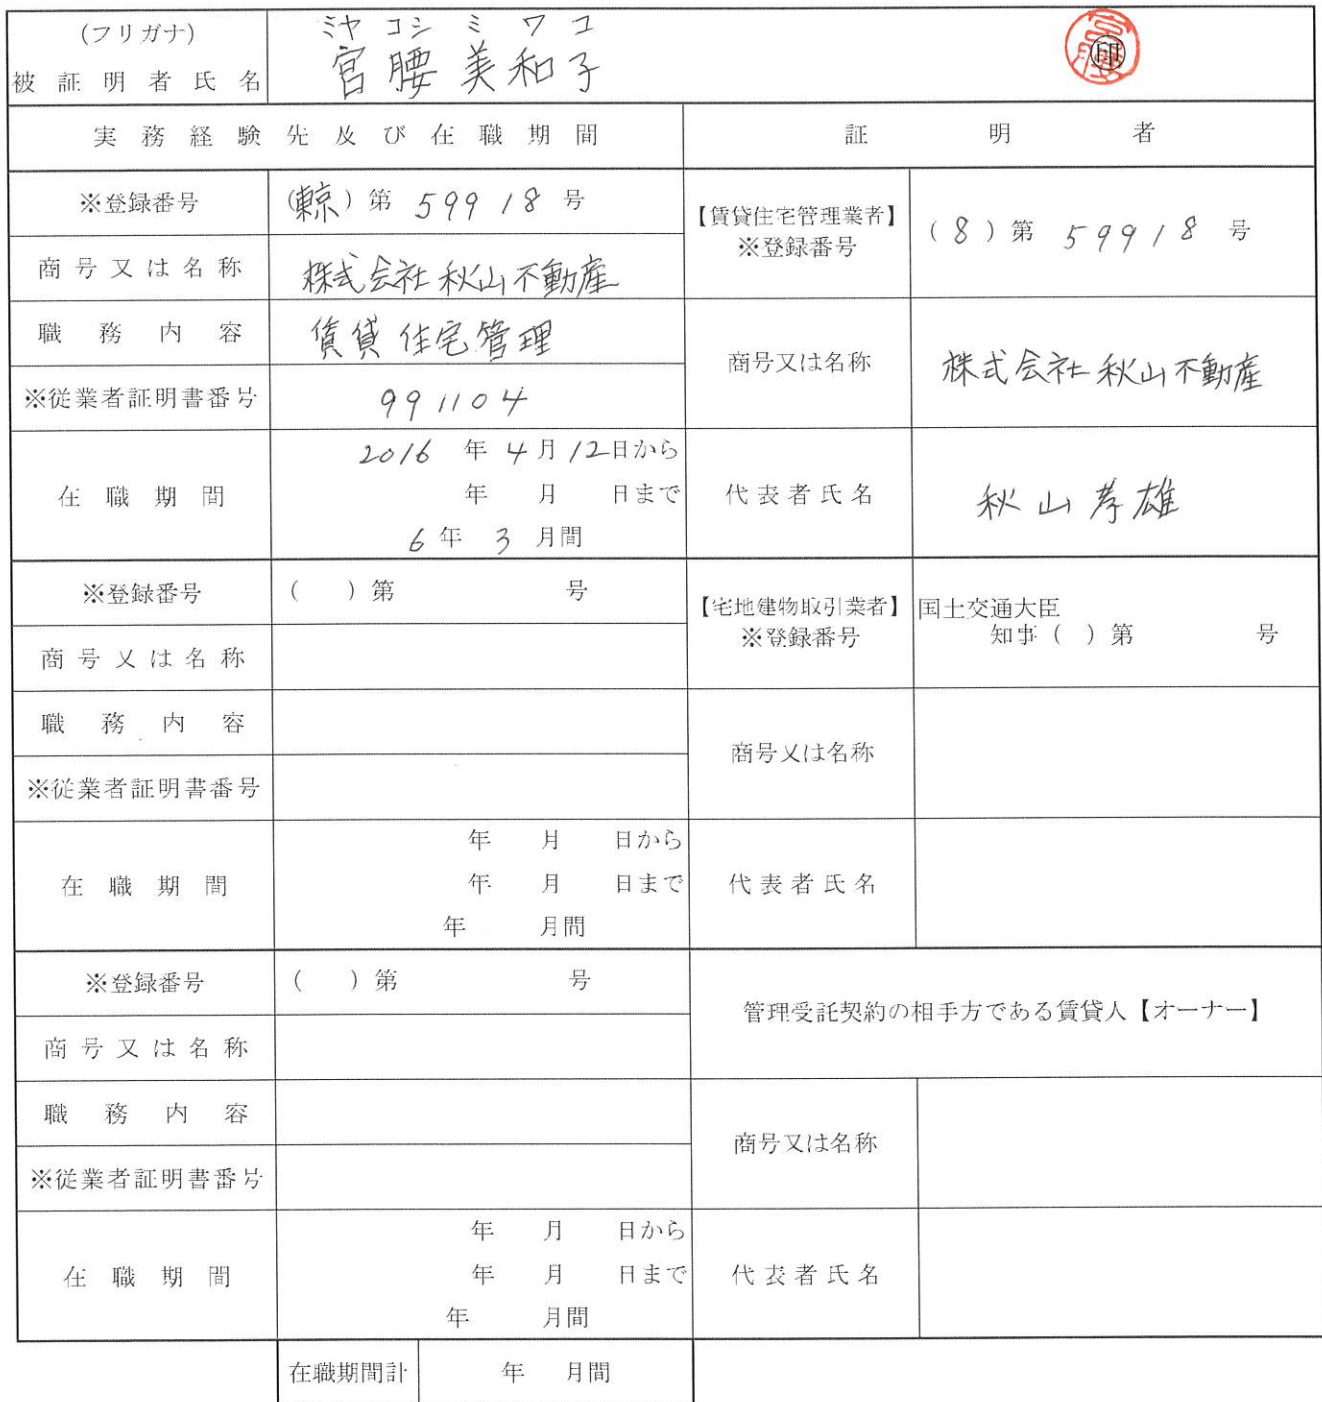 (フリガナ) ミヤ コシ ミ ワ コ
被証明者氏名 宮腰美和子 印
実務経験先及び在職期間 証明者
※登録番号 (東京)第 59918 号
【賃貸住宅管理業者】
※登録番号 (8)第 59918 号
商号又は名称 株式会社秋山不動産
職務内容 賃貸住宅管理
商号又は名称 株式会社秋山不動産
※従業者証明書番号 991104
在職期間 2016 年 4月 12日から
年 月 日まで
6年 3 月間
代表者氏名 秋山孝雄
※登録番号 ( )第 号
【宅地建物取引業者】 国土交通大臣
※登録番号 知事( )第 号
商号又は名称
職務内容
商号又は名称
※従業者証明書番号
在職期間 年 月 日から
年 月 日まで
年 月間
代表者氏名
※登録番号 ( )第 号
管理受託契約の相手方である賃貸人【オーナー】
商号又は名称
職務内容
商号又は名称
※従業者証明書番号
在職期間 年 月 日から
年 月 日まで
年 月間
代表者氏名
在職期間計 年 月間